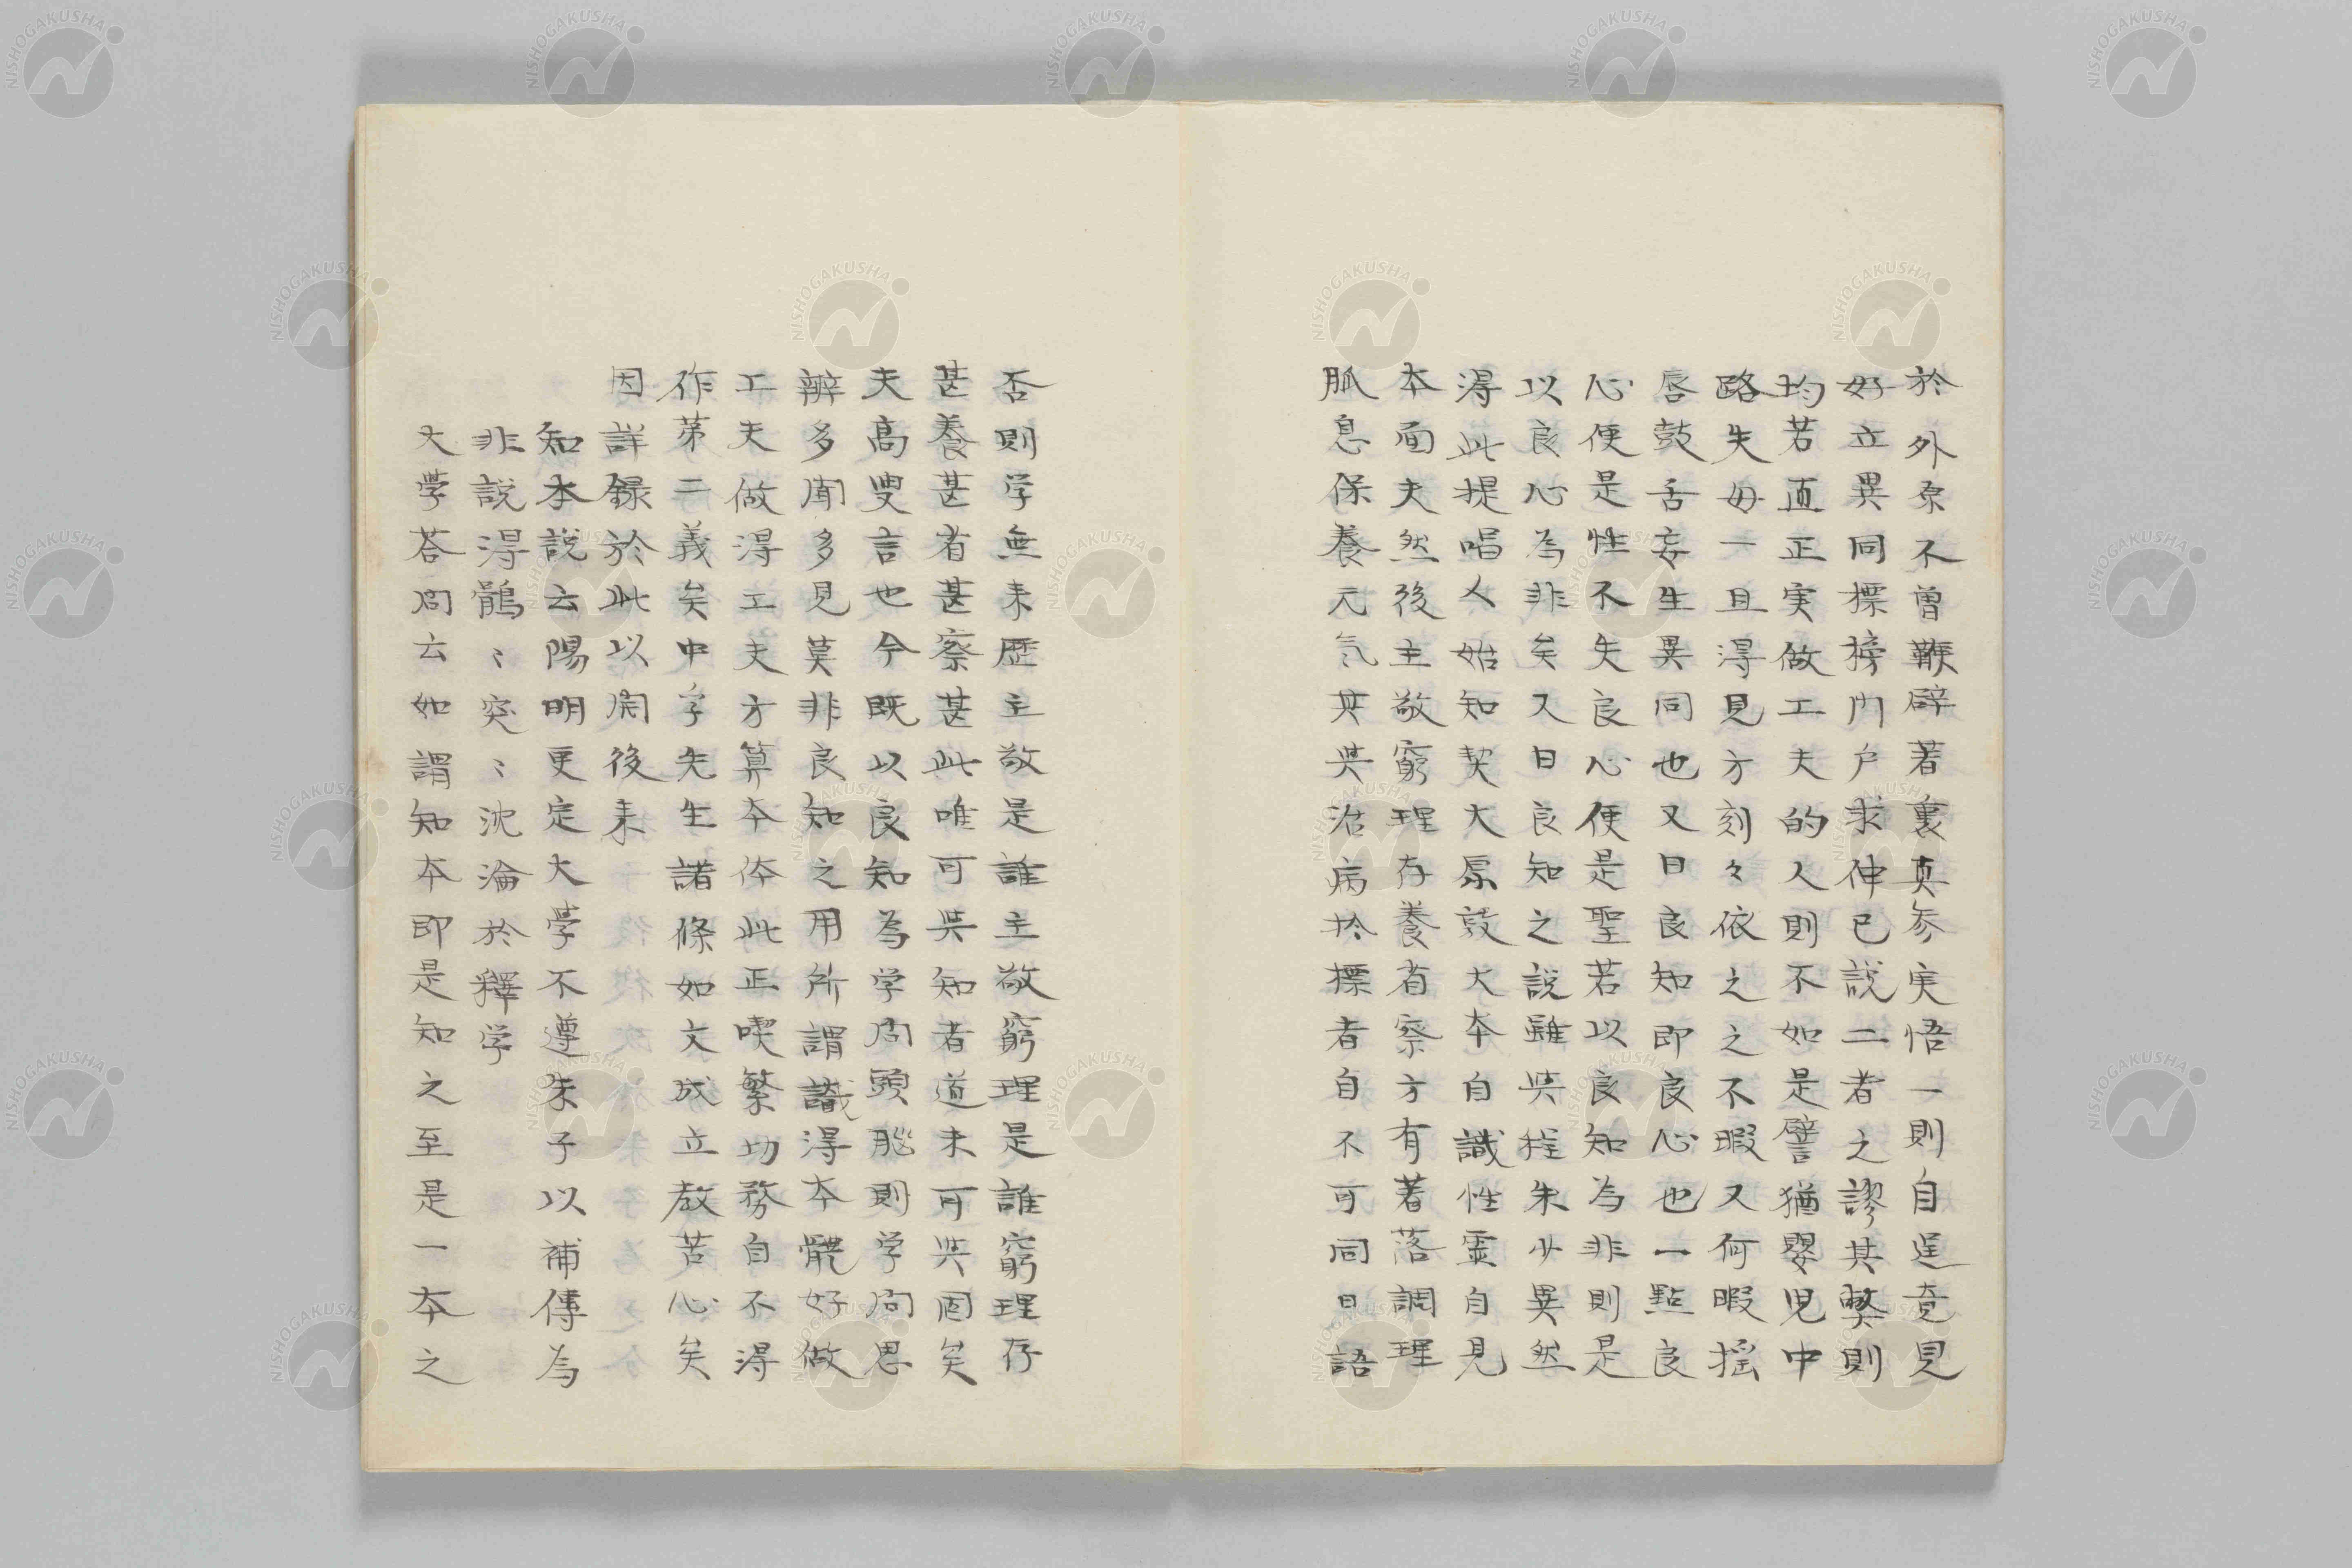 於外原不曽鞭辟著裏真参実悟一則自逞意見
好立異同標榜門户求伸己說二者之謬其弊則
均若直正実做工夫的人則不如是譬猶嬰児中
路失母一旦得見方刻々依之之不暇又何暇揺
唇鼓舌妄生異同也又曰良知即良心也一點良
心便是性不失良心便是聖若以良知為非則是
以良心為非矣又曰良知之説雖與程朱少異然
得此提唱人始知契大原敦大本自識性霊自見
本面夫然後主敬窮理存養省察方有著落調理
脈息保養元気其與治病於標者自不可同日語
否則学無来歴主敬是誰主敬窮理是誰窮理存
甚養甚省甚察甚此唯可與知者道未可與固矣
夫高叟言也今既以良知為学問頭脳則学問思
辨多聞多見莫非良知之用所謂識得本體好做
工夫做得工夫方算本体此正喫繁功務自不得
作第二義矣中孚先生諸條如文成立教苦心矣
因詳録於此以開後来
知本説云陽明更定大學不遵朱子以補傳為
非説得鶻〻突〻沈淪於釋学
大學荅問云如謂知本即是知之至是一本之
NISHOGAKUSHA